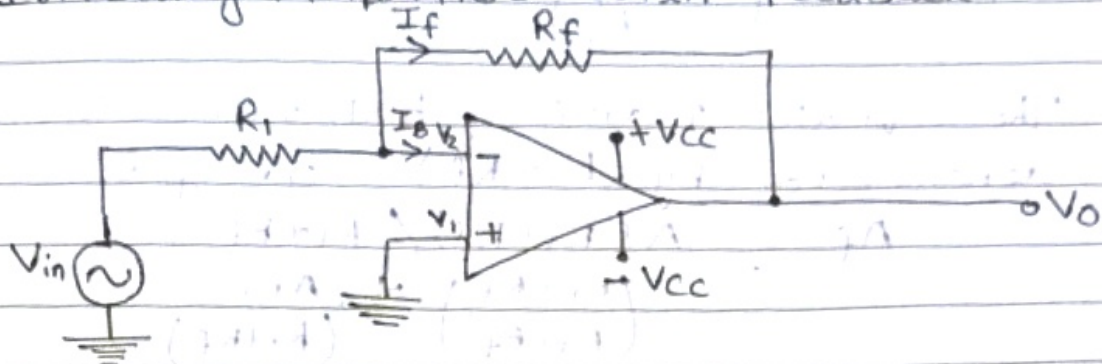 If Rf
R1 IB V2 - +VCC
V1 +
Vin VO
- VCC